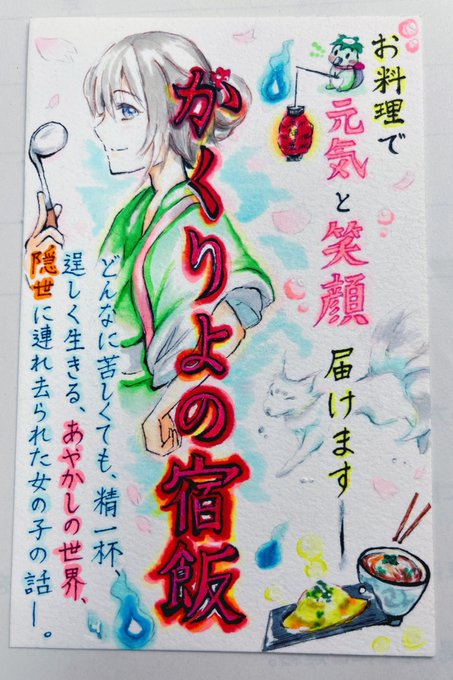 お料理で
元気と笑顔
届けます
かくりよの宿飯
どんなに苦しくても、精一杯、
逞しく生きる、あやかしの世界、
隠世に連れ去られた女の子の話ー。